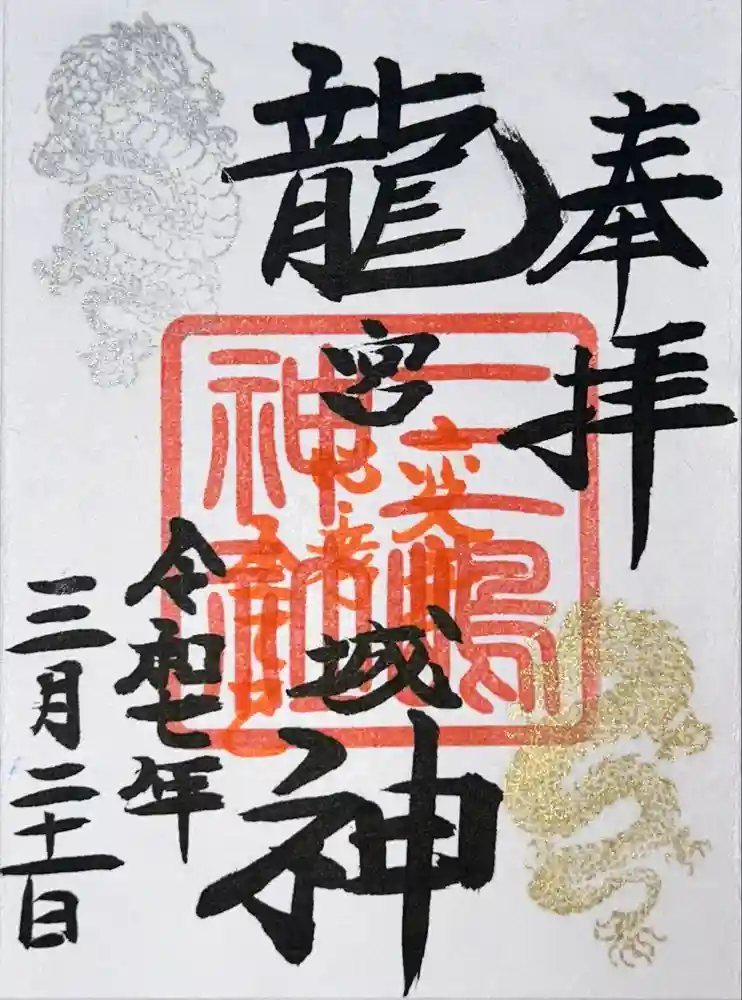 奉拝
龍宮城神
三嶋
神社
令和七年
三月二十一日